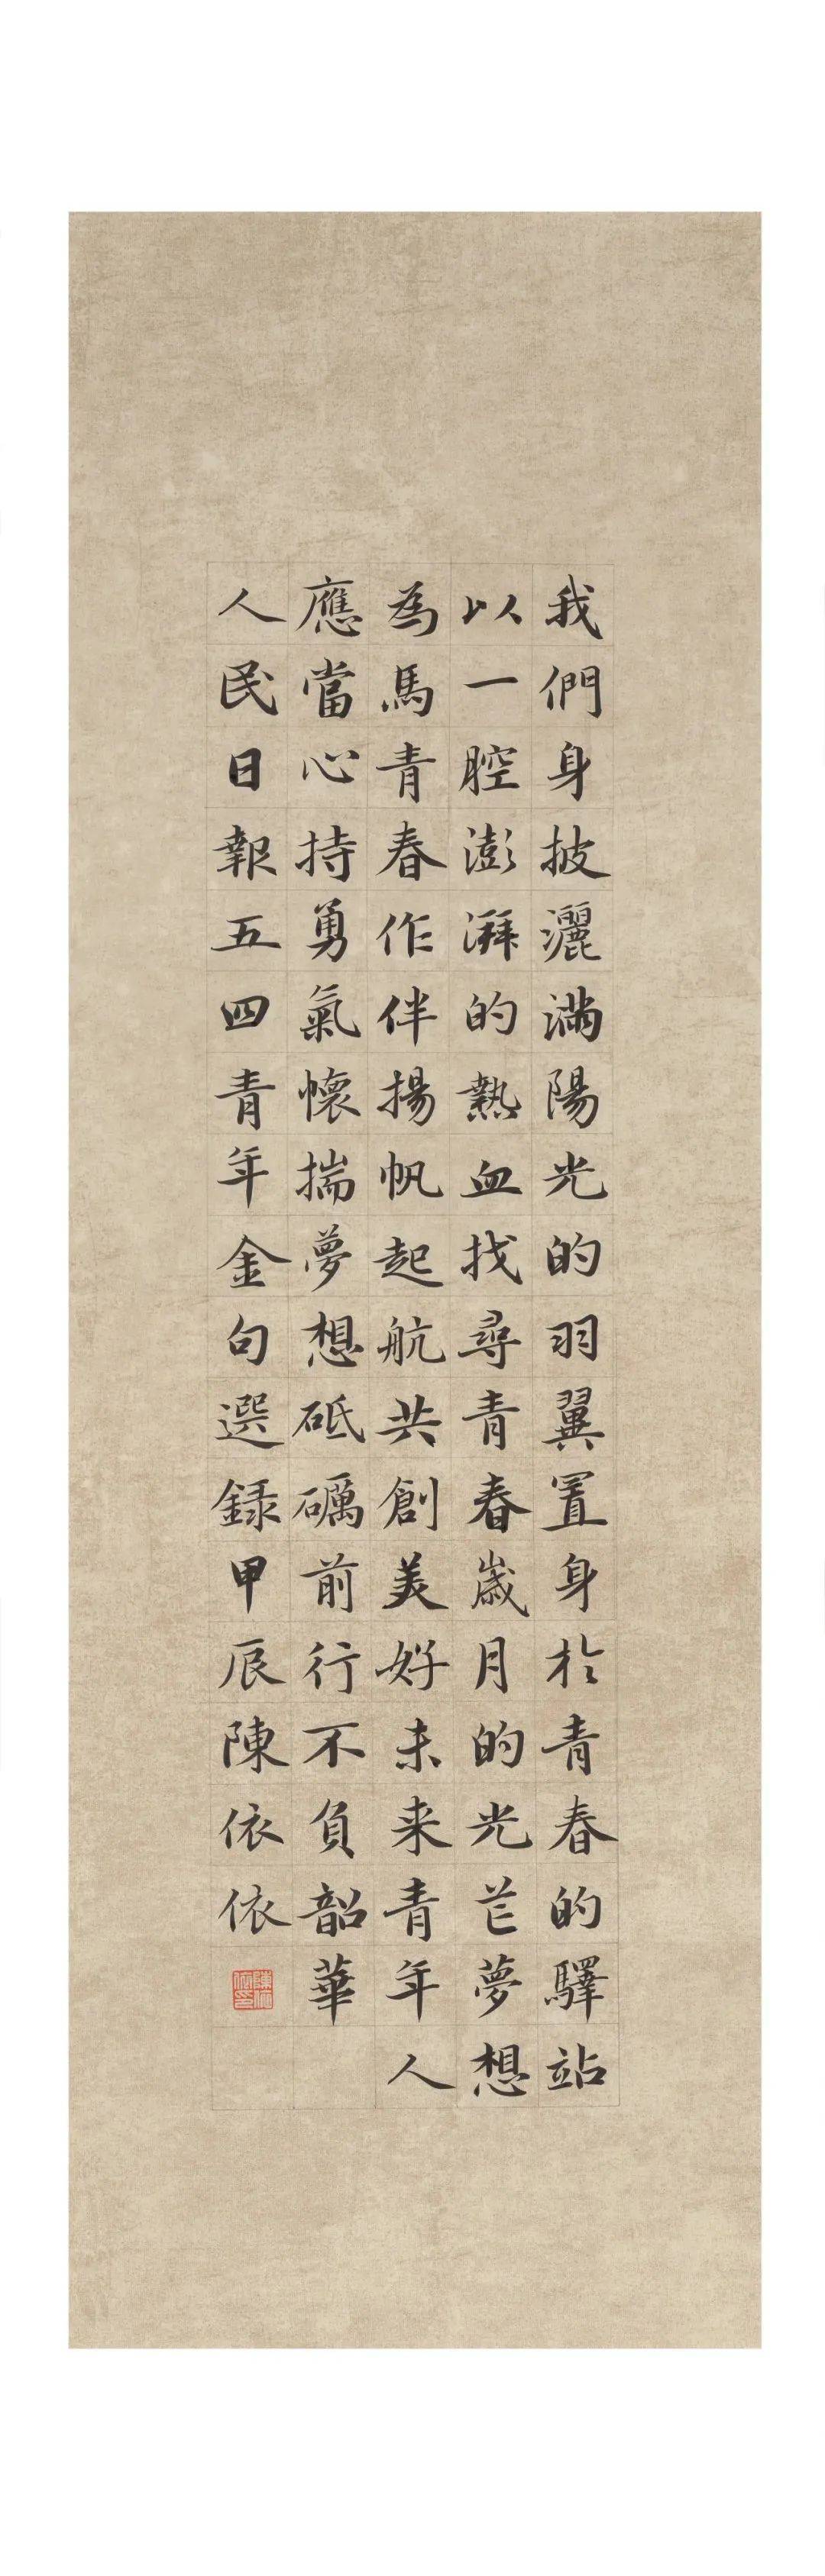 我們身披灑滿陽光的羽翼置身於青春的驛站
以一腔澎湃的熱血找尋青春歲月的光芒夢想
為馬青春作伴揚帆起航共創美好未来青年人
應當心持勇氣懷揣夢想砥礪前行不負韶華
人民日報五四青年金句選録甲辰陳依依